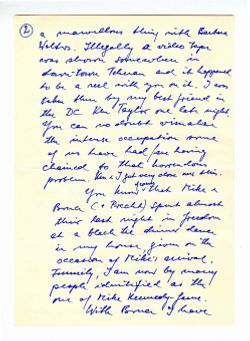 ②
a marvellous thing with Barbara
Walters. Illegally a video tape
was shown somewhere in
down-town Tehran and it happened
to be a reel with you on it. I was
taken there by my best friend in
the DC Ken Taylor one late night.
You can no doubt visualise
the intense occupation some
of us have had for having
chained to that horrendous
problem. Ken & I got very close over this.
You know that Mike &
(+ Precht) spent almost
their last night in freedom
at a black tie dinner dance
in my house, given on the
occasion of Mike's arrival.
Funnily, I am now by many
people identified as the
one of Mike Kennedy fame.
With I have